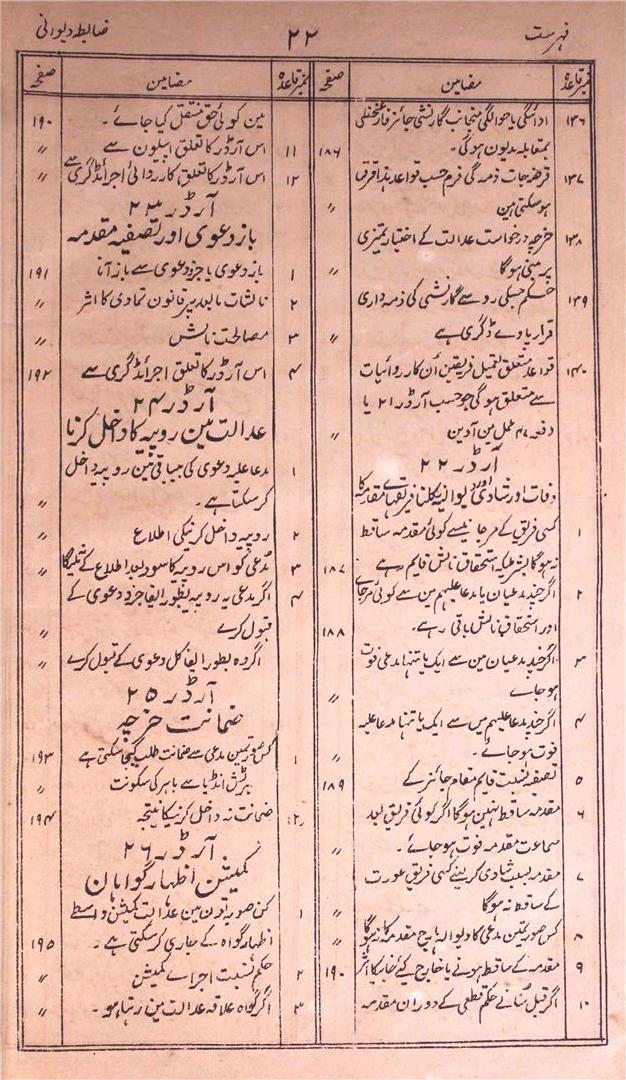 فہرست ۲۲ ضابطہ دیوانی
نمبر قاعدہ مضامین صفحہ
۱۳۶ ادائگی یا حوالگی منجانب گارنشی جائز فارغخطی
بمقابلہ مدیون ہوگی۔ ۱۸۶
۱۳۷ قرضہ جات ذمہ گی فرم حسب قواعد ہذا قرق
ہوسکتی ہین 〃
۱۳۸ خرچہ درخواست عدالت کے اختیار تمیزی
پر مبنی ہوگا 〃
۱۳۹ حکم جسکی رو سے گارنشی کی ذمہ داری
قرار پاوے ڈگری ہے 〃
۱۴۰ قواعد متعلق تعمیل فریقین اُن کارروائیات
سے متعلق ہوگی جو حسب آرڈر ۲۱ یا
دفعہ ۴۷ عمل مین آدین 〃
آرڈر ۲۲
وفات اور شادی اور دیوالیہ نکلنا فریقہائے مقدمہ کا
۱ کسی فریق کے مرجانیسے کوئی مقدمہ ساقط
نہ ہوگا بشرطیکہ استحقاق نالش قایم رہے ۱۸۷
۲ اگر چند مدعیان یا مدعا علیہم مین سے کوئی مرجائے
اور استحقاق نالش باقی رہے۔ ۱۸۸
۳ اگر چند مدعیان مین سے ایک یا تنہا مدعی فوت
ہو جاے 〃
۴ اگر چند مدعا علیہم میں سے ایک یا تنہا مدعا علیہ
فوت ہو جائے۔ 〃
۵ تصفیہ نسبت قایم مقام جائز کے ۱۸۹
۶ مقدمہ ساقط نہین ہوگا اگر کوئی فریق بعد
سماعت مقدمہ فوت ہو جائے۔ 〃
۷ مقدمہ بسبب شادی کرلینے کسی فریق عورت
کے ساقط نہ ہوگا 〃
۸ کس صورتمین مدعی کا دیوالہ ہارج مقدمہ کا نہ ہوگا 〃
۹ مقدمہ کے ساقط ہونے یا خارج کیے جانیکا اثر ۱۹۰
۱۰ اگر قبل سُنانے حکم قطعی کے دوران مقدمہ
نمبر قاعدہ مضامین صفحہ
مین کوئی حق منتقل کیا جائے۔ ۱۹۰
۱۱ اس آرڈر کا تعلق اپیلون سے 〃
۱۲ اس آرڈر کا تعلق کارروائی اجرائڈگری سے 〃
آرڈر ۲۳
باز دعوی اور تصفیہ مقدمہ
۱ باز دعوی یا جزو دعوی سے باز آنا ۱۹۱
۲ نالشات مابعد پر قانون تمادی کا اثر 〃
۳ مصالحت نالش 〃
۴ اس آرڈر کا تعلق اجرائڈگری سے ۱۹۲
آرڈر ۲۴
عدالت مین روپیہ کا داخل کرنا
۱ مدعا علیہ دعوی کی بیباقی مین روپیہ داخل
کرسکتا ہے۔ 〃
۲ روپیہ داخل کرنیکی اطلاع 〃
۳ مُدعی کو اس روپیہ کا سود بعد اطلاع کے نملیگا 〃
۴ اگر مدعی یہ روپیہ بطور ایفا جزو دعوی کے
قبول کرے 〃
اگر وہ بطور ایفا کل دعوی کے قبول کرے 〃
آرڈر ۲۵
ضمانت خرچہ
۱ کس صورتمین مدعی سے ضمانت طلب کیجاسکتی ہے ۱۹۳
برٹش انڈیا سے باہر کی سکونت 〃
۲ ضمانت نہ داخل کرنیکا نتیجہ ۱۹۴
آرڈر ۲۶
کمیشن اظہار گواہان
۱ کن صورتون مین عدالت کمیشن واسطے
اظہار گواہ کے جاری کرسکتی ہے۔ ۱۹۵
۲ حکم نسبت اجراے کمیشن 〃
۳ اگر گواہ علاقہ عدالت مین رہتا ہو۔ 〃